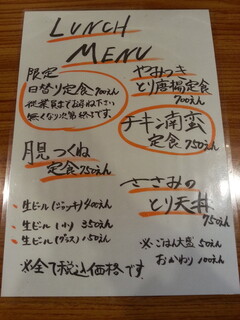 LUNCH
MENU
限定
日替り定食700えん
従業員までお尋ね下さい
無くなり次第終了です。
やみつき
とり唐揚定食
700えん
チキン南蛮
定食 750えん
月見つくね
定食 750えん
ささみの
とり天丼
750えん
・生ビール(ジョッキ)400えん
・生ビール(小) 350えん
・生ビール(グラス) 150えん
※・ごはん大盛 50えん
おかわり 100えん
※全て税込価格です